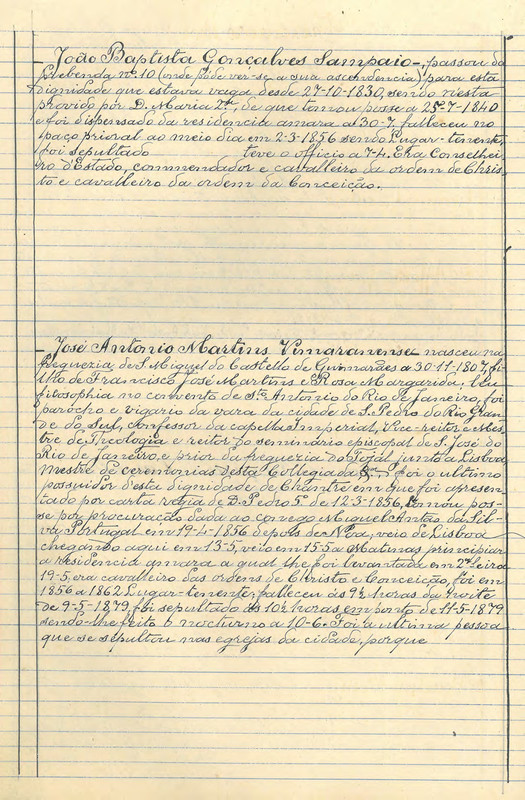 — João Baptista Gonçalves Sampaio —, passou da
Prebenda nº 10 (onde pode ver-se a sua ascendencia) para esta
dignidade que estava vaga desde 27-10-1830, sendo n'esta
provido por D. Maria 2ª, de que tomou posse a 25-7-1840
e foi dispensado da residencia amara al 30-7, falleceu no
paço prioral ao meio dia em 2-3-1856 sendo Lugar-tinente,
foi sepultado teve o officio a 7-4. Era Conselhei-
ro d'Estado, commendador e cavalleiro da ordem de Chris-
to e cavalleiro da ordem da Conceição.
— José Antonio Martins Vimaranense nasceu na
freguezia de S. Miguel do Castello de Guimarães a 30-11-1807, fi-
lho de Francisco José Martins e Rosa Margarida,
filosophia no convento de Stº Antonio do Rio de Janeiro, foi
parocho e vigario da vara da cidade de S. Pedro do Rio Gran-
de do Sul, confessor da capella Imperial, Vice-reitor e Mes-
tre de Theologia e reitor do seminário episcopal de S. José do
Rio de Janeiro, e prior da freguezia do Tojal junto a Lisboa,
mestre de ceremonias desta Collegiada Foi o ultimo
possuidor d'esta dignidade de Chantre em que foi apresen-
tado por carta regia de D. Pedro 5º de 12-3-1856, tomou pos-
se por procuração dada ao conego Miguel Antão da Sil-
va Portugal em 19-4-1856 depois de Nôa, veio de Lisboa
chegando aqui em 13-5, veio em 15-5 a Matinas principiar
a residencia amara a qual lhe foi levantada em 2ª feira
19-5, era cavalleiro das ordens de Christo e Conceição, foi em
1856 a 1862 Lugar-tenente, falleceu ás 9½ horas da noite
de 9-5-1879, foi sepultado ás 10½ horas em ponto de 11-5-1879
sendo-lhe feito o nocturno a 10-6. Foi a ultima pessoa
que se sepultou nas egrejas da cidade, porque